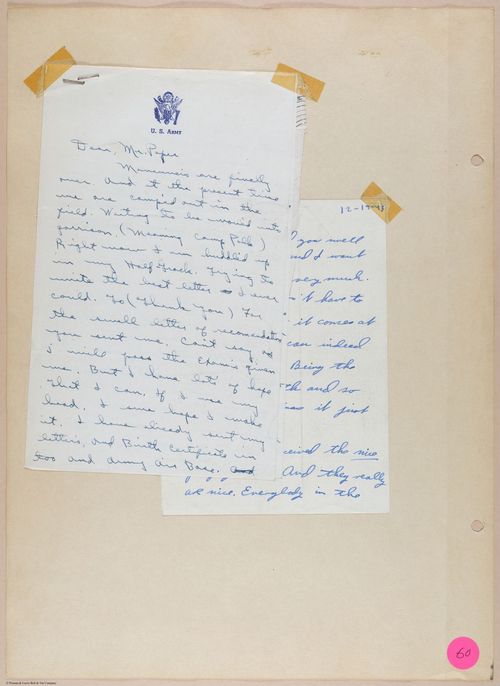 U. S. ARMY
Dear, Mr. Piper
Manuvueis are finally
over. And at the present time
we are camp'd out in the
field. Waiting to be moved into
garrison (Meaning Camp Polk)
Right now I'm huddled up
in my Half Track. Trying to
write the best letter I ever
could. To (Thank you) For
the swell letter of recomendation
you sent me. Can't say
I will pass the Exams given
me. But I have lots of hope
That I can, If I use my
head. I sure hope I make
it. I have already sent my
letters, and Birth Certificate in
too and army air Base. and
12-17-43
you well
and I want
very much.
't have to
it comes at
can indeed
Being the
th and so
as it just
ceived the nice
And they really
are nice. Everybody in the
60